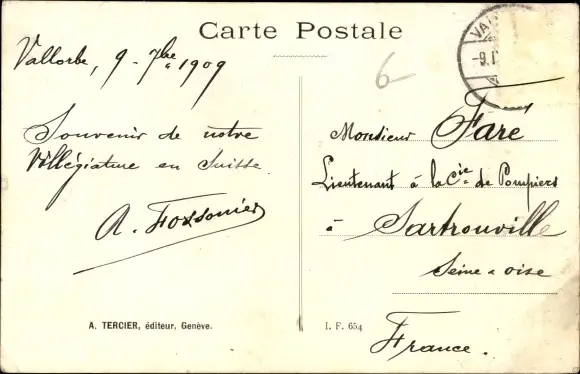 Carte Postale
Vallorbe, 9 - 7bre 1909
Souvenir de notre
Villégiature en Suisse.
A. Fossonier
6
Monsieur Fare
Lieutenant à la Cie de Pompiers
à Sartrouville
Seine & oise
France.
A. TERCIER, éditeur, Genève.
I. F. 654
VA
-9.I